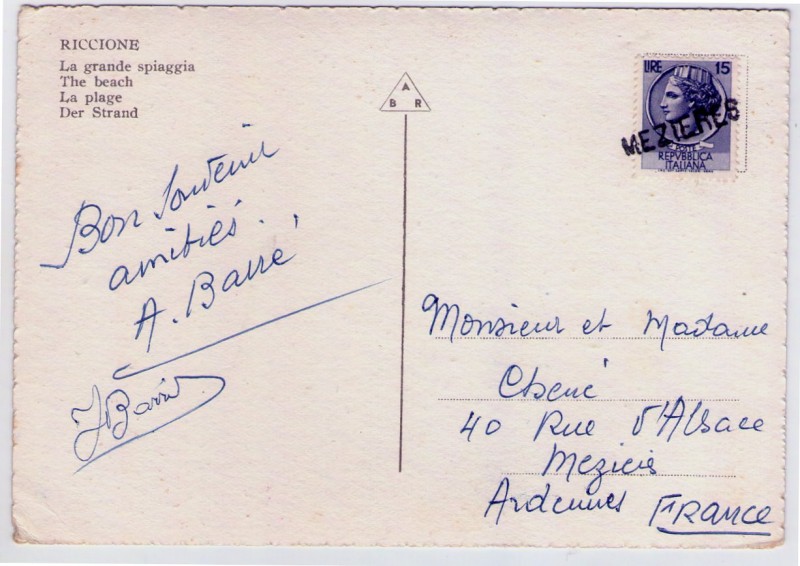 RICCIONE
La grande spiaggia
The beach
La plage
Der Strand
A
B R
LIRE 15
POSTE
REPVBBLICA
ITALIANA
MEZIERES
Bon Souvenir
amitiés.
A. Barré
J Barré
Monsieur et Madame
40 Rue d'Alsace
Mezieis
Ardennes France